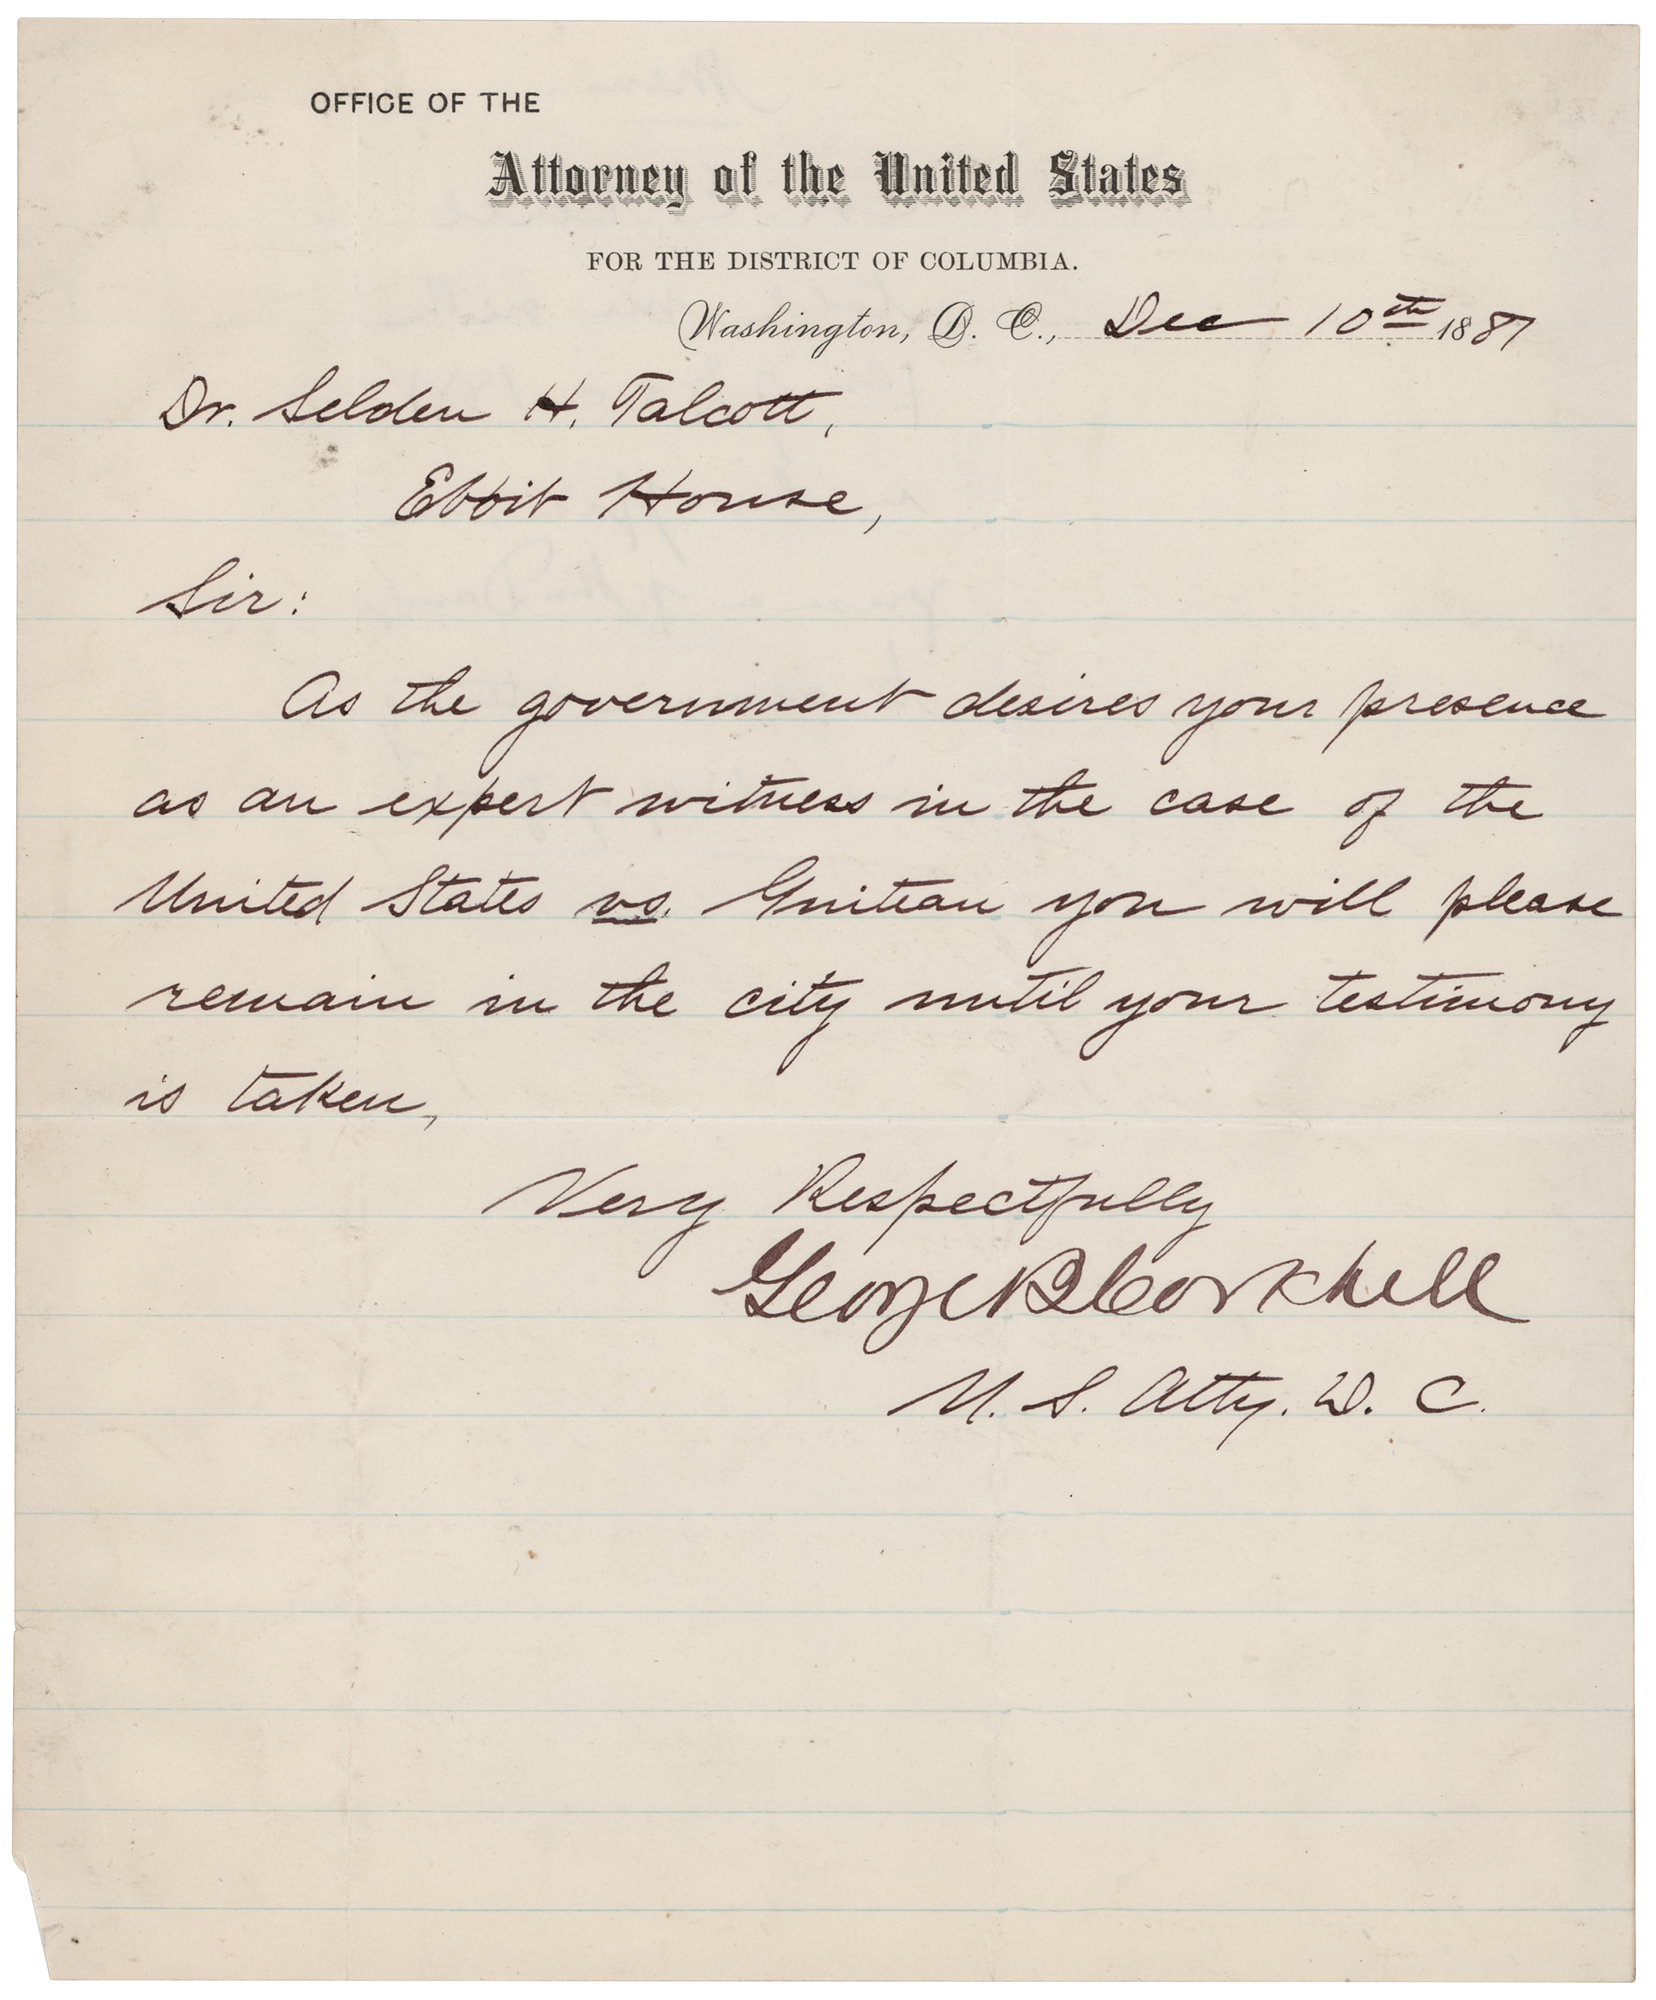 OFFICE OF THE
Attorney of the United States
FOR THE DISTRICT OF COLUMBIA.
Washington, D. C., Dec 10th 1881
Dr. Selden H. Talcott,
Ebbit House,
Sir:
As the government desires your presence
as an expert witness in the case of the
United States vs. Guiteau you will please
remain in the city until your testimony
is taken,
Very Respectfully
George B Corkhill
U. S. Atty. D. C.